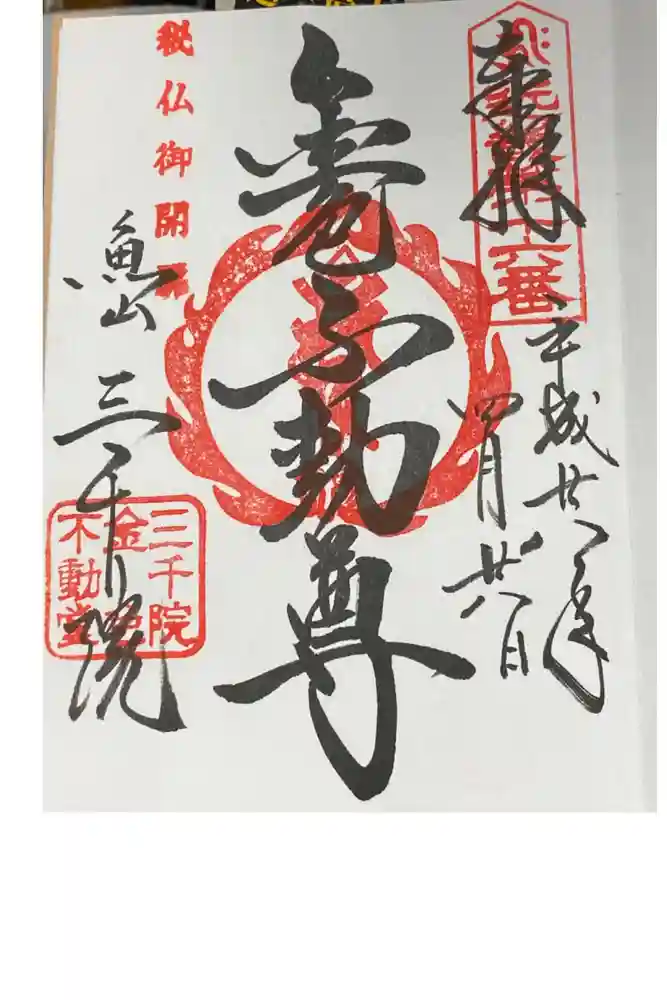 奉拝
六番
平成廿八年
四月廿八日
金色不動尊
秘仏御開扉
魚山
三千院
三千院
金色
不動堂